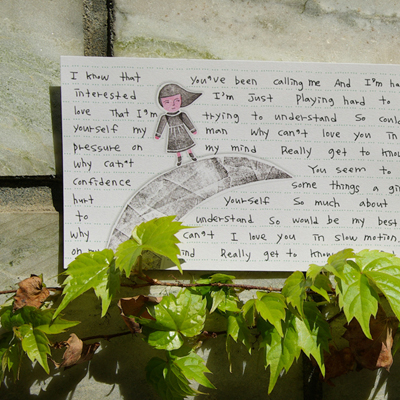 I know that you've been calling me And I'm
interested I'm Just Playing hard to
love That I'm trying to understand So
yourself my man Why can't love you in
pressure on my mind Really get to know
why can't You seem to
confidence some things a
hurt Yourself So much about
to understand So would be my best
why can't I love you in slow motion
Really get to